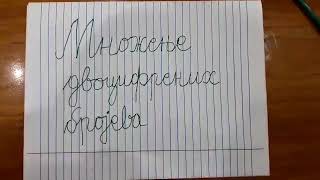 Множење
двоцифрених
бројева